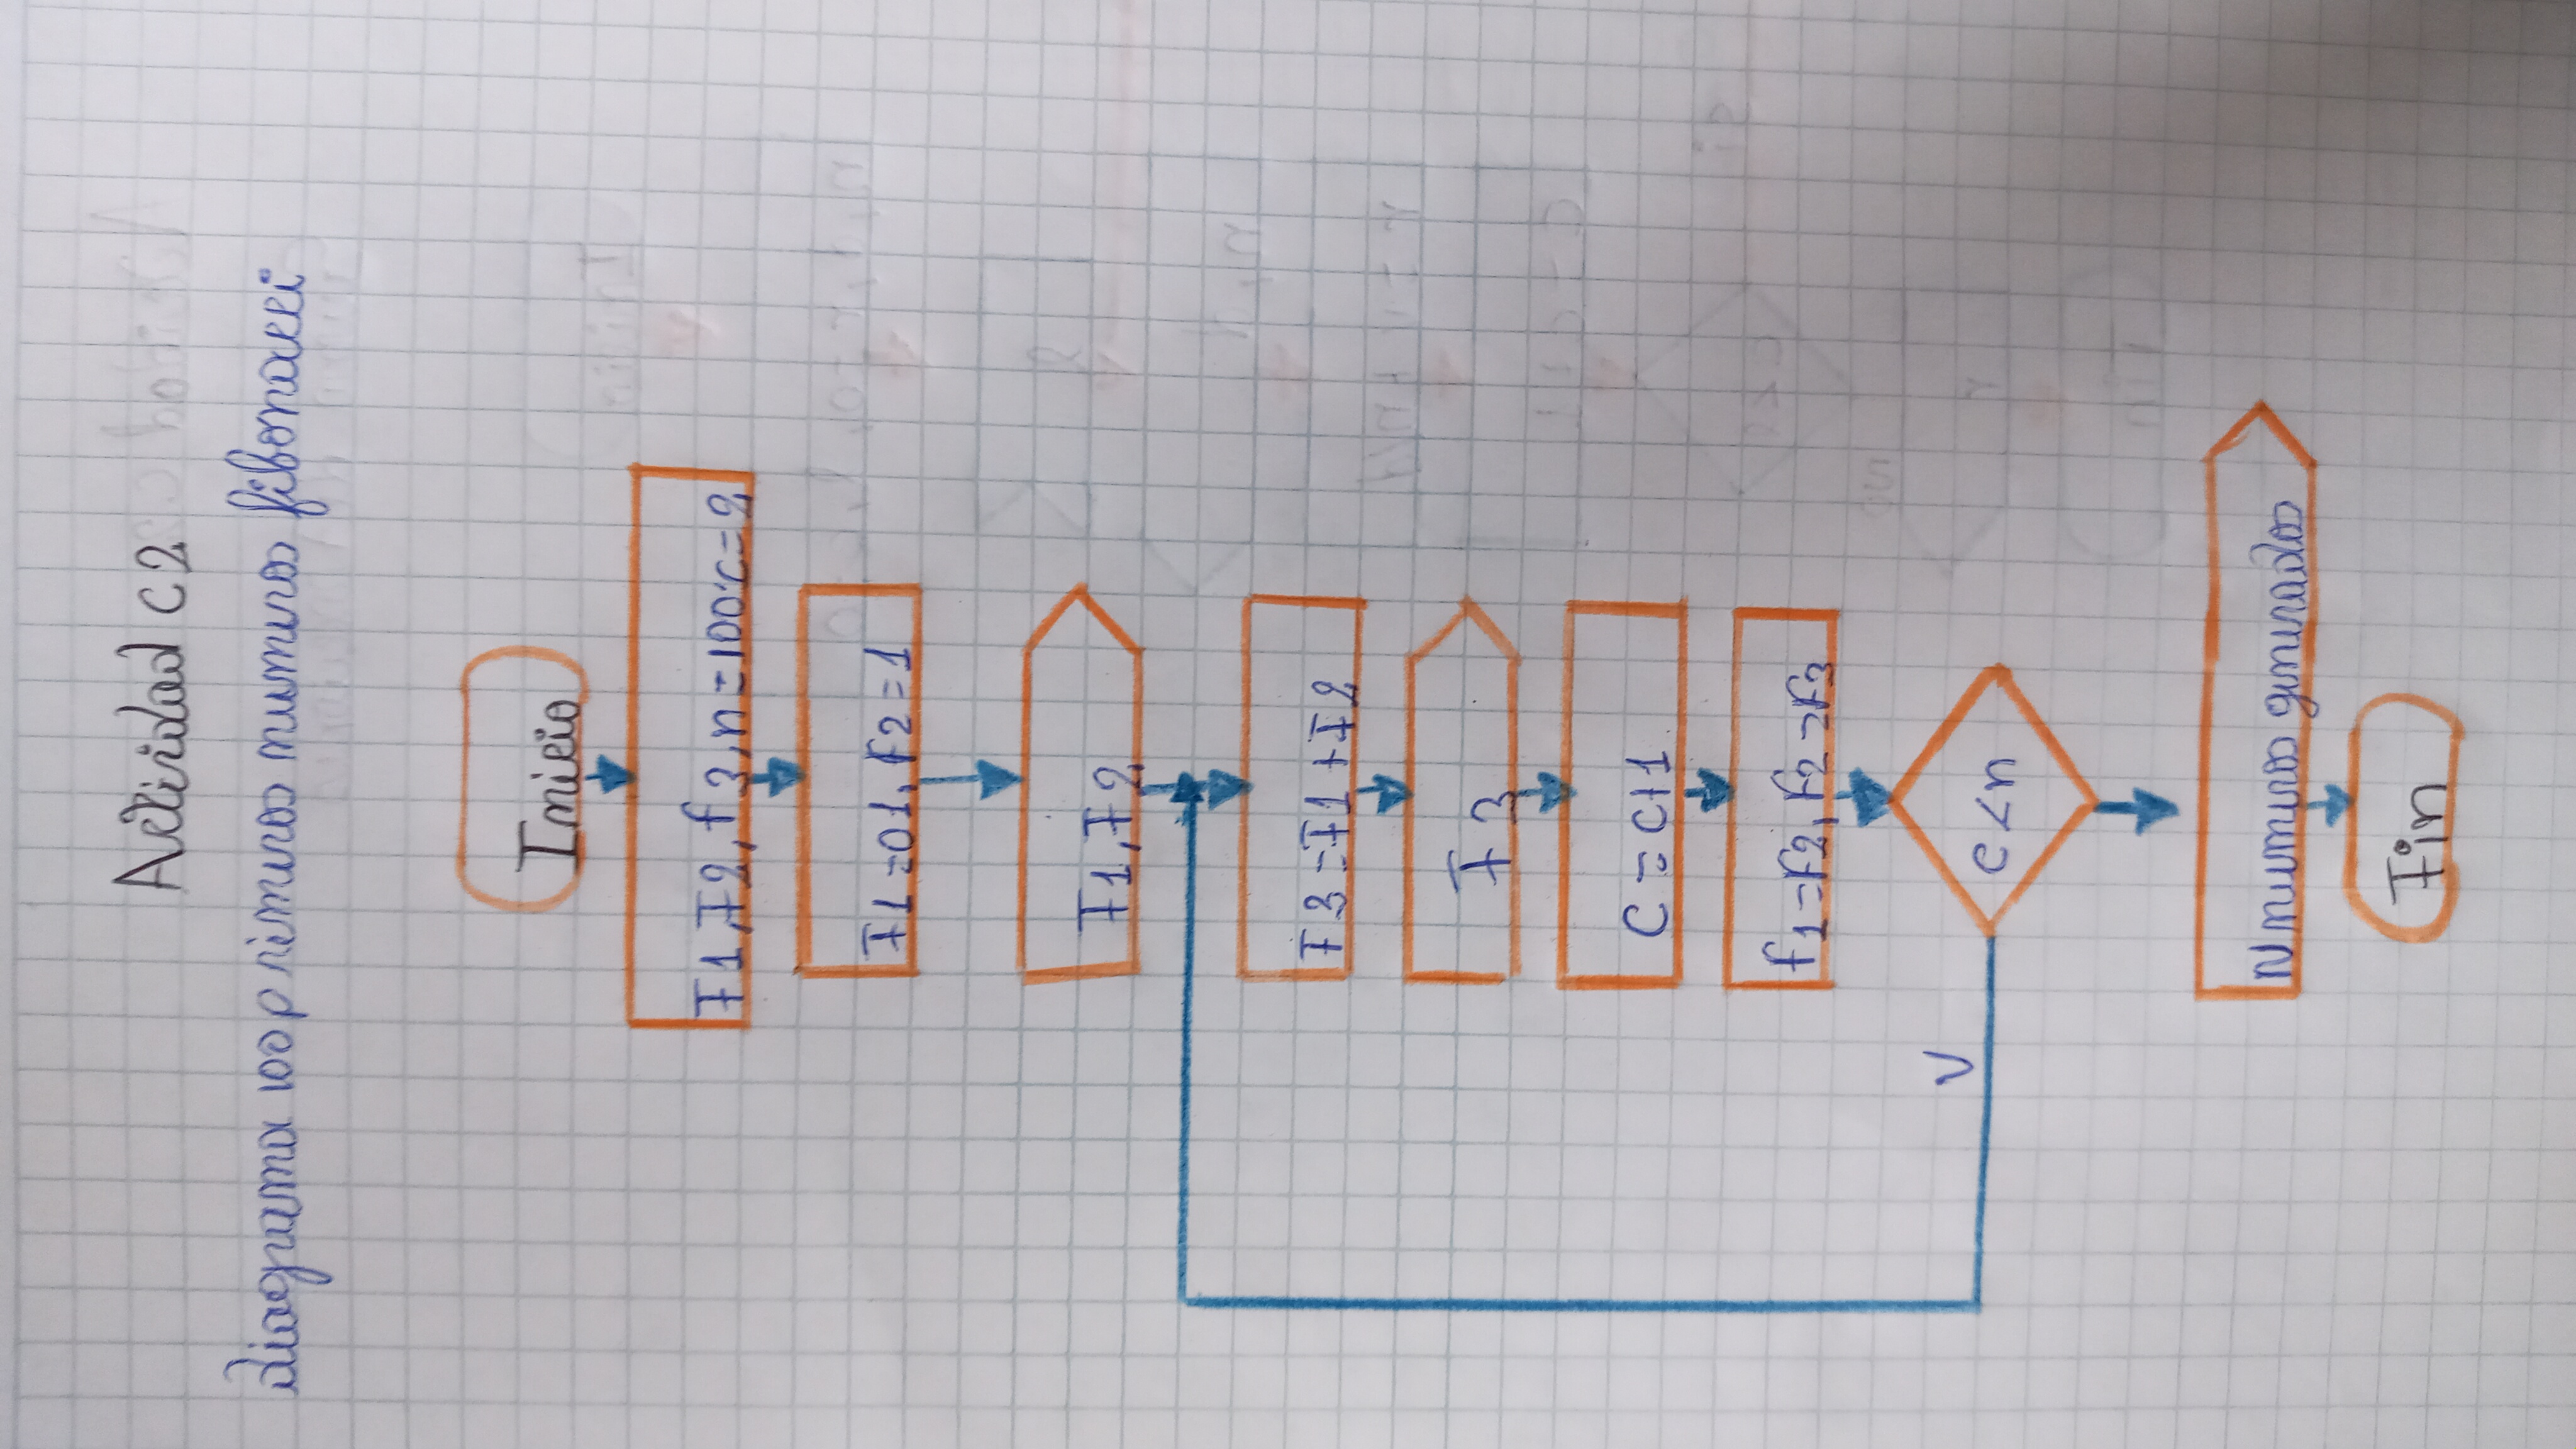 Actividad C2
diagrama 100 primeros numeros fibonacci
Inicio
F1,F2,f3,n=100:c=2
F1=01,F2=1
F1,F2
F3=F1+F2
F3
C=C+1
f1=F2,F2=F3
V
c<n
N numeros generados
Fin